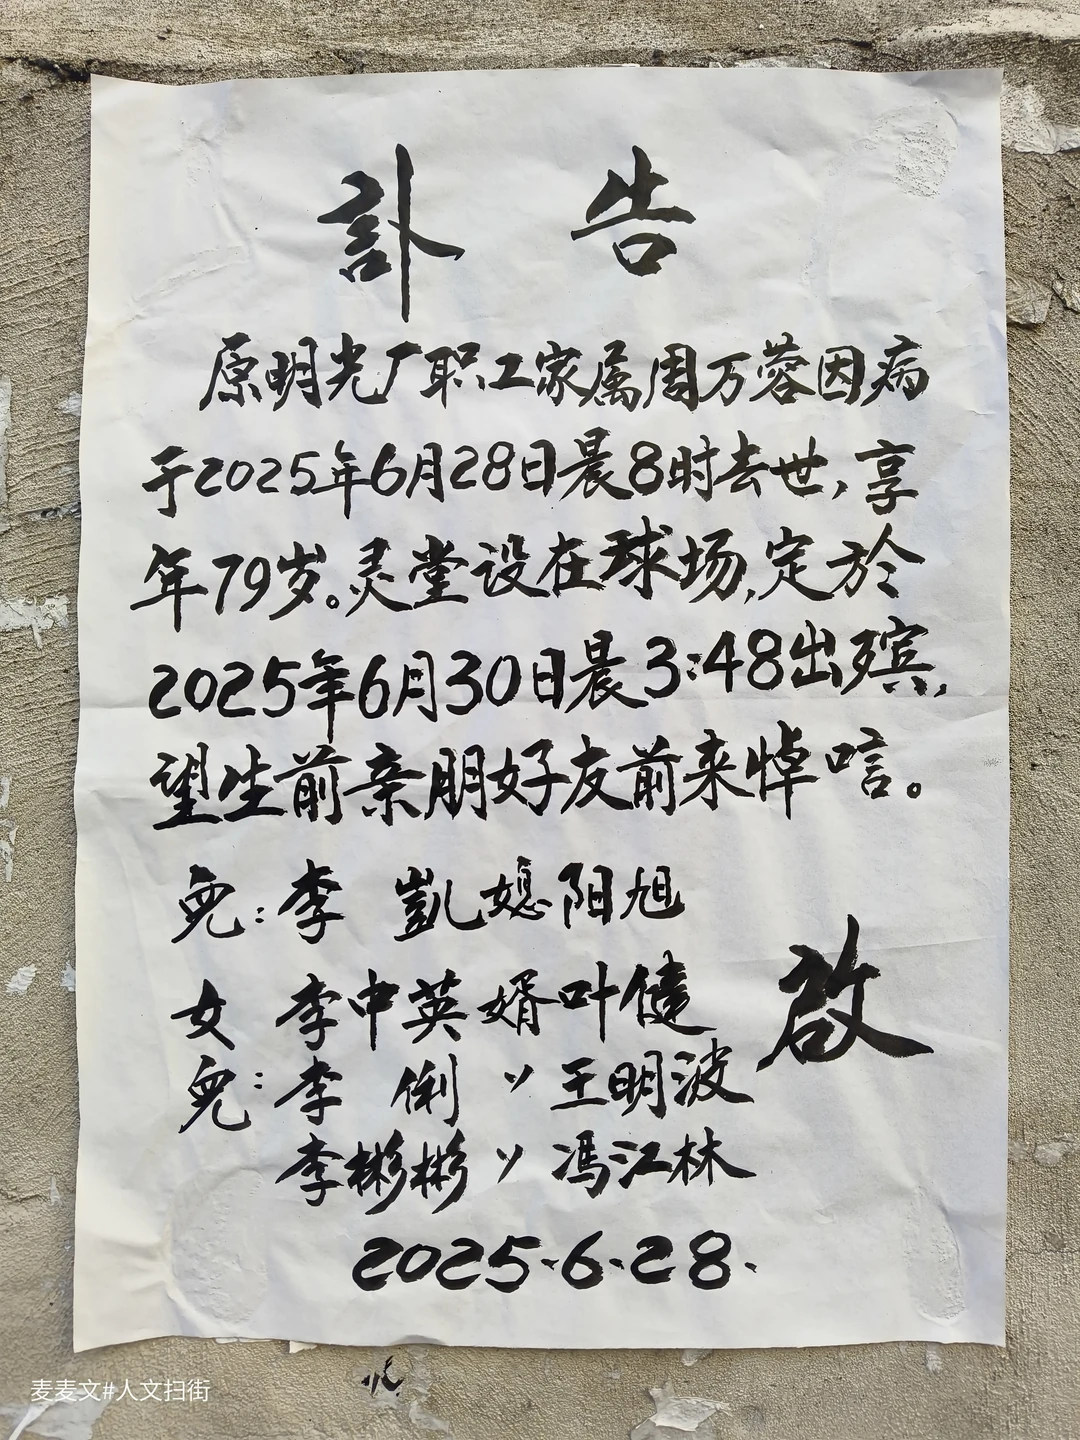 訃 告
原明光厂职工家属周万蓉因病
于2025年6月28日晨8时去世,享
年79岁。灵堂设在球场,定於
2025年6月30日晨3:48出殡,
望生前亲朋好友前来悼唁。
兒:李 凱媳阳旭
女 李中英婿叶健
兒:李 俐 〃王明波
李彬彬〃冯江林
啟
2025·6·28·
麦麦文#人文扫街